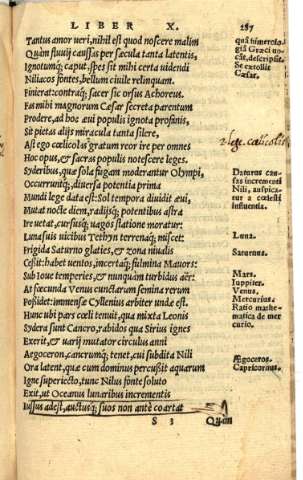 LIBER X. 287
Tantus amor veri, nihil est quod noscere malim
Quàm fluuij caussas per sæcula tanta latentis,
Ignotumq; caput. spes sit mihi certa uidendi
Niliacos fontes, bellum ciuile relinquam.
Finierat: contraq; sacer sic orsus Achoreus.
Fas mihi magnorum Cæsar secreta parentum
Prodere, ad hoc æui populis ignota profinis,
Sit pietas alijs miracula tanta silere,
Ast ego cœlicolas gratum reor ire per omnes
Hoc opus, & sacras populis notescere leges.
Syderibus, quæ sola fugam moderantur Olympi,
Occurruntq;, diuersa potentia prima
Mundi lege data est: Sol tempora diuidit æui,
Mutat nocte diem, radijsq; potentibus astra
Ire uetat, cursusq; uagos statione moratur:
Luna suis uicibus Tethyn terrenaq; miscet:
Frigida Saturno glaties, & zona niualis
Cessit: habet uentos, incertaq; fulmina Mauors:
Sub Ioue temperies, & nunquam turbidus aër:
At fœcunda Venus cunctarum semina rerum
Possidet: immensæ Cyllenius arbiter undæ est.
Hunc ubi pars cœli tenuit, qua mixta Leonis
Sydera sunt Cancro, rabidos qua Sirius ignes
Exerit, & uarij mutator circulus anni
Ægoceron, cancrumq; tenet, cui subdita Nili
Ora latent, quæ cum dominus percussit aquarum
Igne superiecto, tunc Nilus fonte soluto
Exit, ut Oceanus lunaribus incrementis
Iussus adest, auctusq; suos non antè coartat
S 3 Quàm
quã
græci
cæ, descripsit.
Se extollit
Cæsar.
lege. cœlicolis
Daturus caussas
incrementi
Nili, auspicatur
a cœlesti
influentia.
Luna.
Saturnus.
Mars.
Iuppiter.
Venus.
Mercurius.
Ratio mathematica
de mercurio.
Ægoceros.
Capricornus.